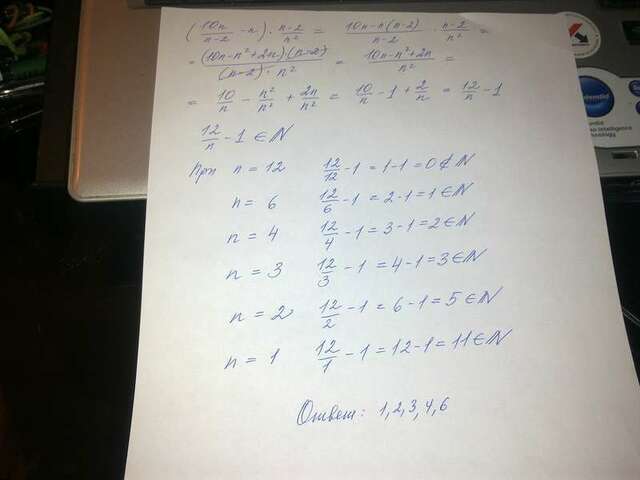 (10n/n-2 - n) · n-2/n² = 10n-n(n-2)/n-2 · n-2/n² =
= (10n-n²+2n)(n-2)/(n-2)·n² = 10n-n²+2n/n² =
= 10/n - n²/n² + 2n/n² = 10/n - 1 + 2/n = 12/n - 1
12/n - 1 ∈ N
При n = 12 12/12 - 1 = 1-1 = 0 ∉ N
n = 6 12/6 - 1 = 2-1 = 1 ∈ N
n = 4 12/4 - 1 = 3-1 = 2 ∈ N
n = 3 12/3 - 1 = 4-1 = 3 ∈ N
n = 2 12/2 - 1 = 6-1 = 5 ∈ N
n = 1 12/1 - 1 = 12-1 = 11 ∈ N
Ответ: 1,2,3,4,6